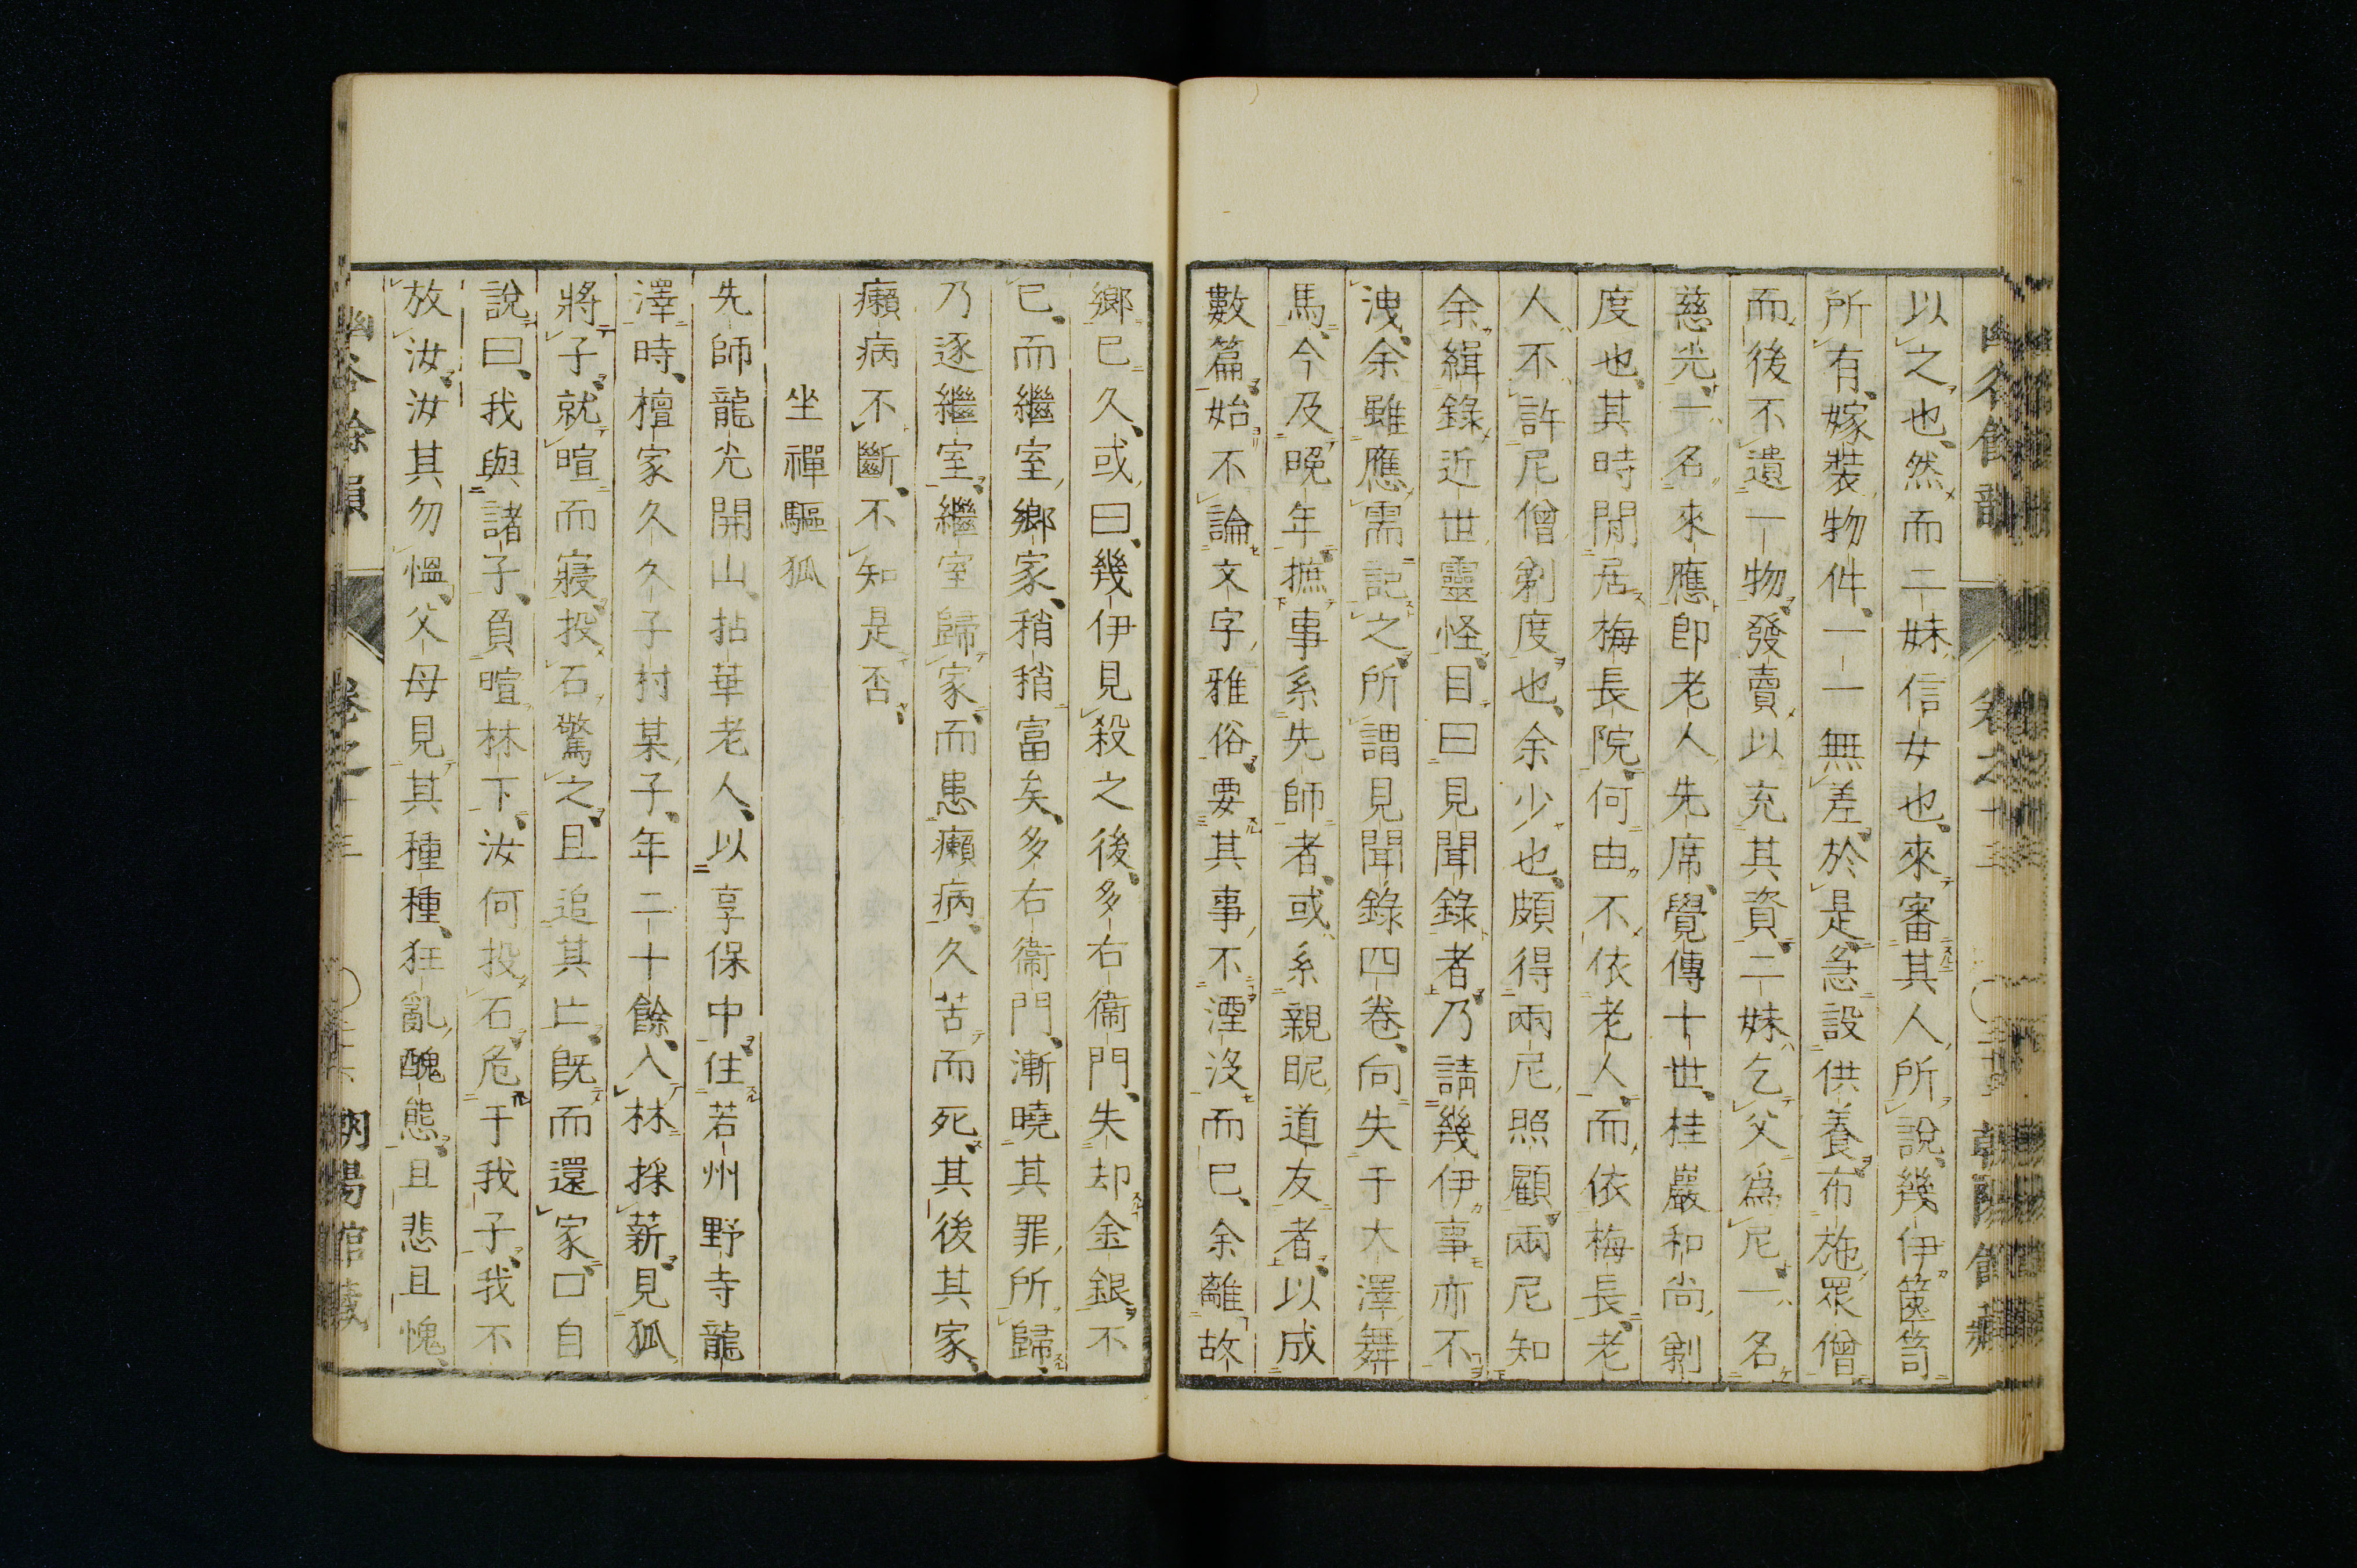 以之也然而二妹信女也來審其人所說幾伊篋笥
所有嫁裝物件一一無差於是急設供養布施眾僧
而後不遺一物發賣以充其資二妹乞父爲尼一名
慈光一名來應卽老人先席覺傳十世桂巖和尚剃
度也其時閒居梅長院何由不依老人而依梅長老
人不許尼僧剃度也余少也頗得兩尼照顧兩尼知
余緝錄近世靈怪目曰見聞錄者乃請幾伊事亦不
洩余雖應需記之所謂見聞錄四卷向失于大澤舞
馬今及晚年摭事系先師者或系親昵道友者以成
數篇始不論文字雅俗要其事不湮沒而已余離故
鄉已久或曰幾伊見殺之後多右衞門失却金銀不
已而繼室鄉家稍稍富矣多右衞門漸曉其罪所歸
乃逐繼室繼室歸家而患癩病久苦而死其後其家
癩病不斷不知是否
坐禪驅狐
先師龍光開山拈華老人以享保中住若州野寺龍
澤時檀家久久子村某子年二十餘入林採薪見狐
將子就暄而寢投石驚之且追其亡既而還家口自
說曰我與諸子負暄林下汝何投石危于我子我不
放汝汝其勿慍父母見其種種狂亂醜態且悲且愧
幽谷餘韻 卷之十三 朝陽館藏